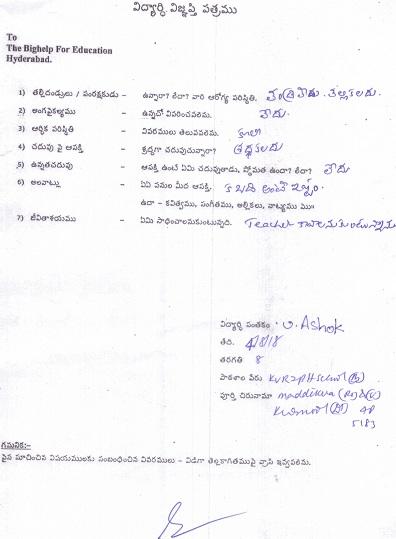 విద్యార్థి విజ్ఞప్తి పత్రము
To
The Bighelp For Education
Hyderabad.
1) తల్లిదండ్రులు / సంరక్షకుడు – ఉన్నారా? లేదా? వారి ఆరోగ్య పరిస్థితి. తండ్రి లేడు. తల్లి కలదు.
2) అంగవైకల్యము – ఉన్నదో వివరించవలెను. లేదు.
3) ఆర్థిక పరిస్థితి – వివరములు తెలుపవలెను. కూలీ
4) చదువు పై ఆసక్తి – శ్రద్ధగా చదువుచున్నారా? శ్రద్ధ కలదు
5) ఉన్నతచదువు – ఆసక్తి ఉంటే ఏమి చదువుతాడు, స్తోమత ఉందా? లేదా? లేదు
6) అలవాట్లు – ఏఏ పనుల మీద ఆసక్తి. కబడి అంటే ఇష్టం.
ఉదా – కవిత్వము, సంగీతము, అల్లికలు, నాట్యము ము॥
7) జీవితాశయము – ఏమి సాధించాలనుకుంటున్నది. Teacher కావాలనుకుంటున్నాను
విద్యార్థి సంతకం : U. Ashok
తేది. 4/8/18
తరగతి 8
పాఠశాల పేరు KVR ZPH School
పూర్తి చిరునామా maddikera
Kurnool AP
5183
గమనిక:–
పైన సూచించిన విషయములకు సంబంధించిన వివరములు – విడిగా తెల్లకాగితముపై వ్రాసి ఇవ్వవలెను.